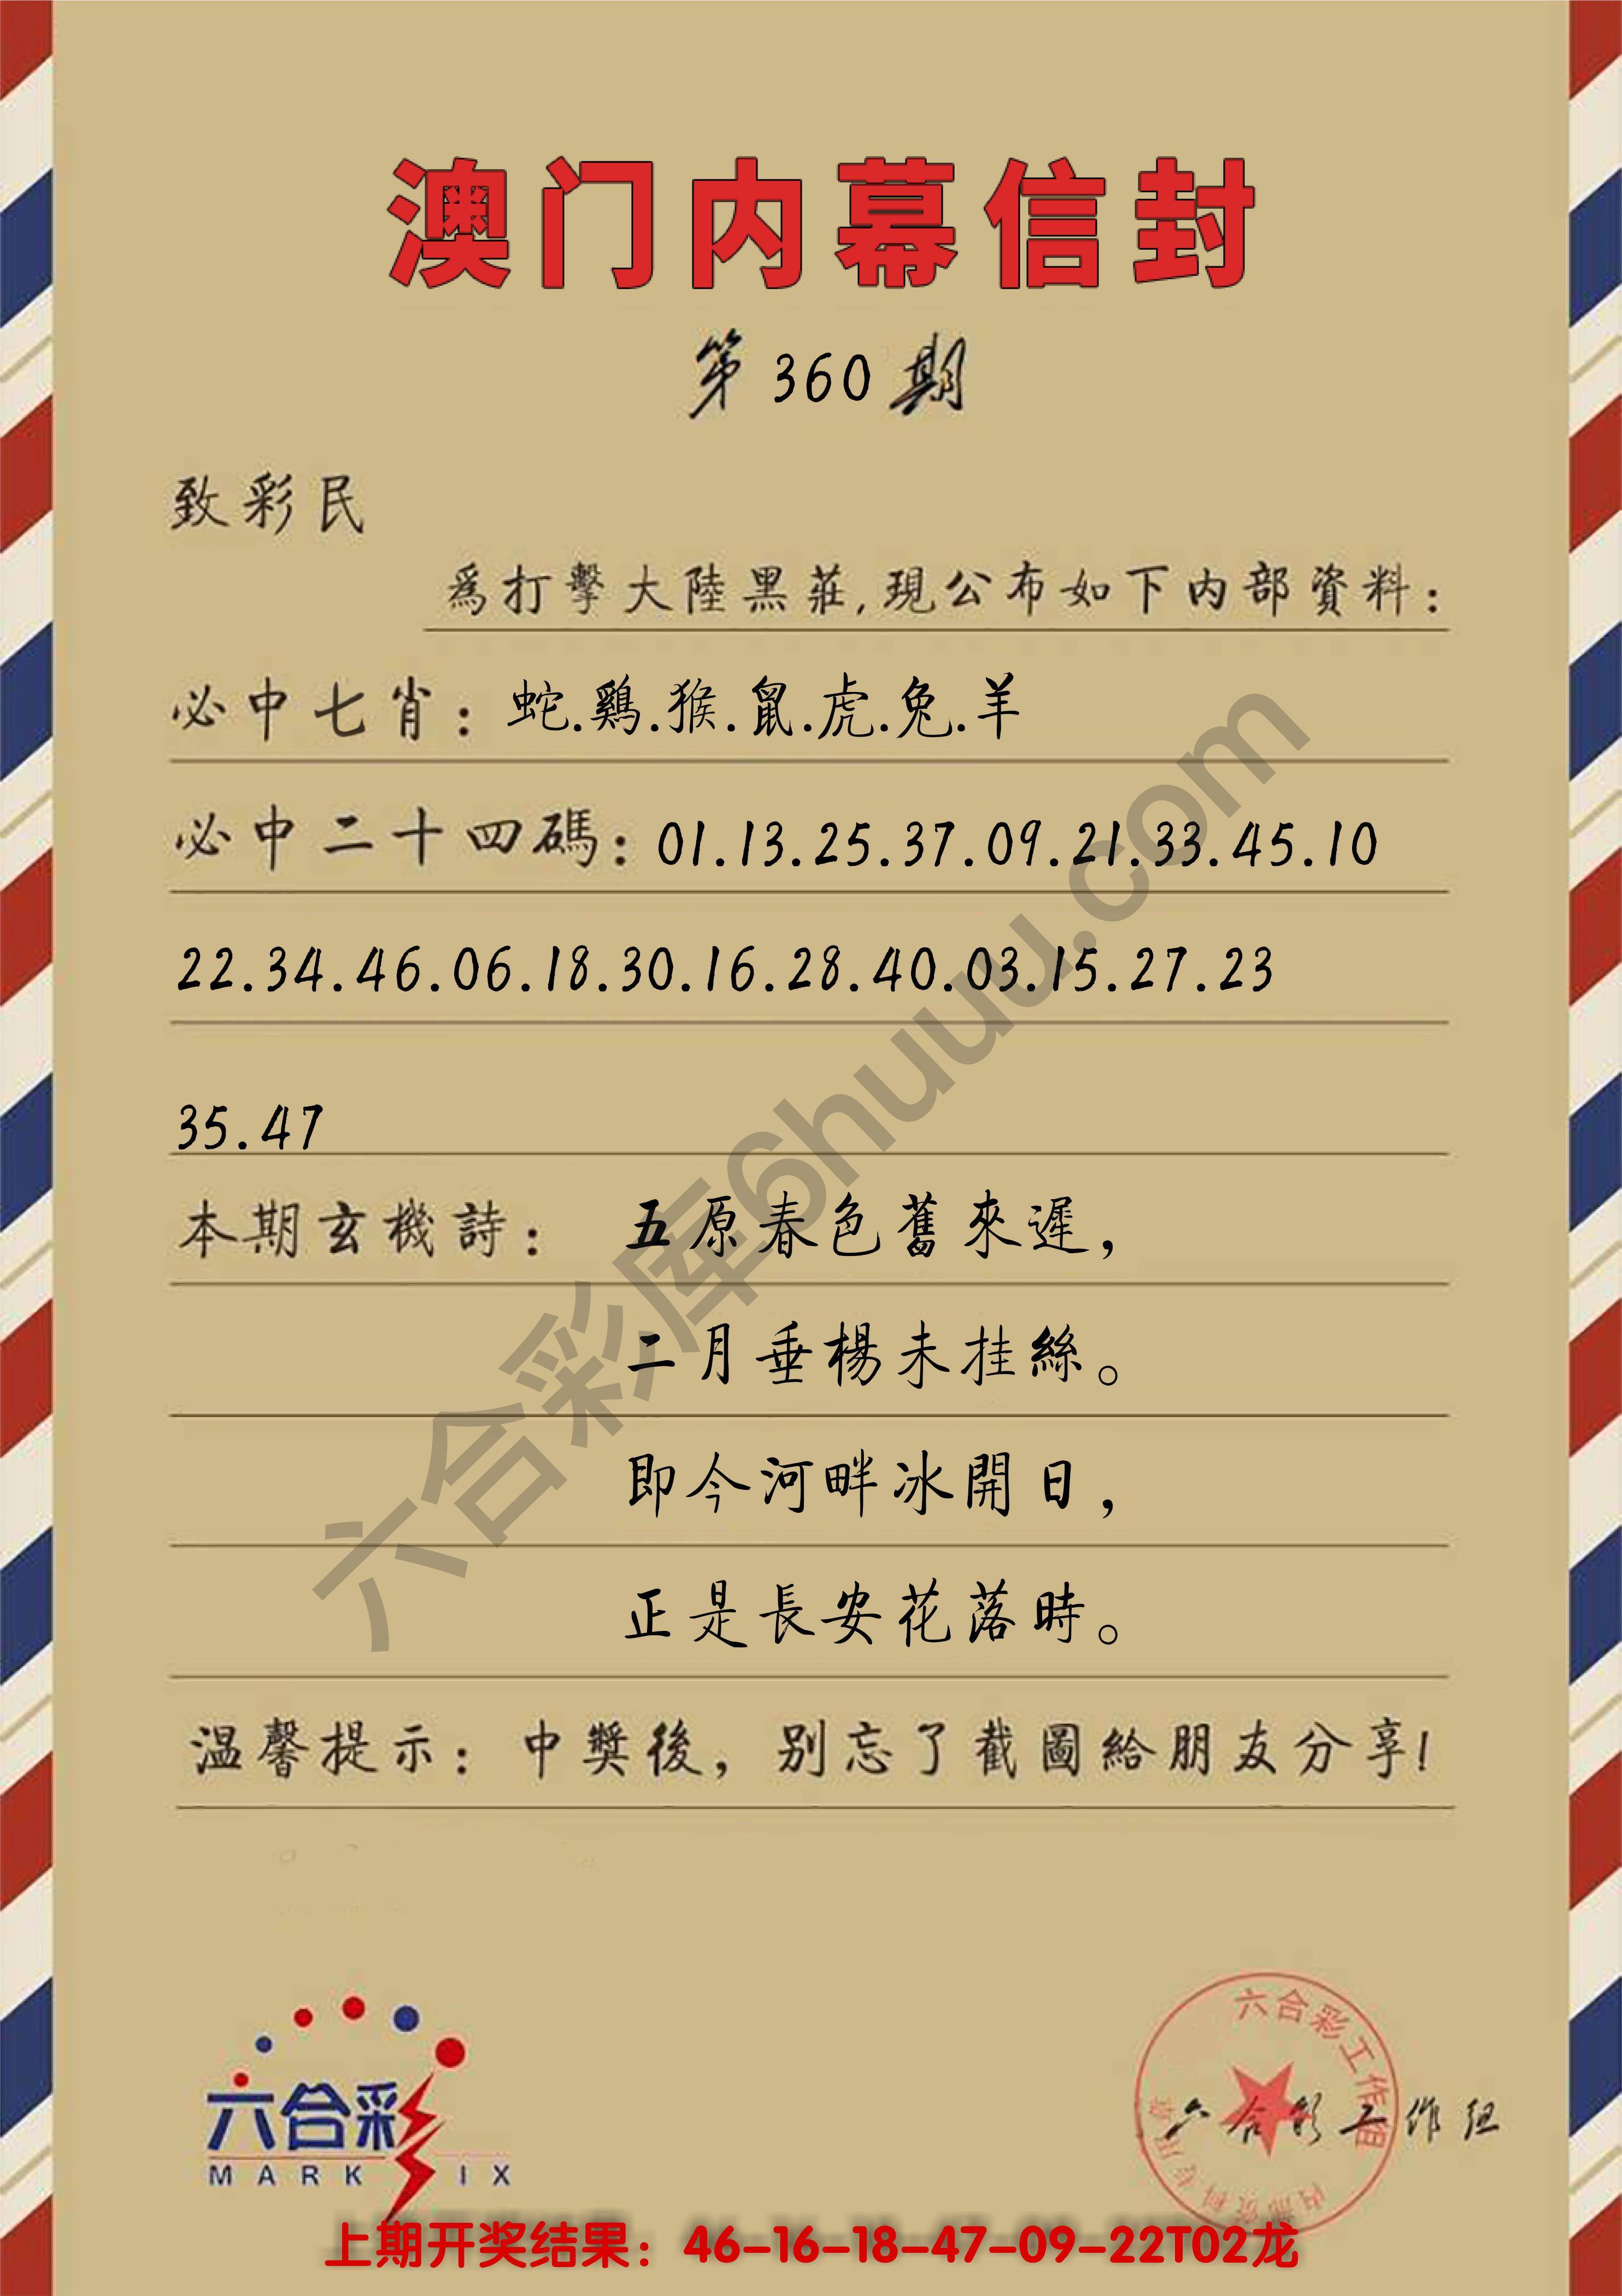 澳门内幕信封
第360期
致彩民
爲打擊大陸黑莊,現公布如下内部資料:
必中七肖: 蛇.鷄.猴.鼠.虎.兔.羊
必中二十四碼: 01.13.25.37.09.21.33.45.10
22.34.46.06.18.30.16.28.40.03.15.27.23
35.47
本期玄機詩: 五原春色舊來遲,
二月垂楊未挂絲。
即今河畔冰開日,
正是長安花落時。
温馨提示: 中獎後, 别忘了截圖給朋友分享!
六合彩库6huuu.com
六合彩
MARK IX
六合彩工作组
内部资料专用章
六合彩工作组
上期开奖结果: 46-16-18-47-09-22T02龙